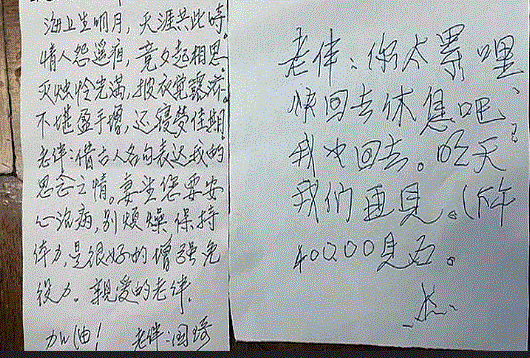 海上生明月,天涯共此时。
情人怨遥夜,竟夕起相思。
灭烛怜光满,披衣觉露滋。
不堪盈手赠,还寝梦佳期。
老伴:借古人名句表达我的
思念之情。妻望您要安
心治病,别烦燥保持
体力,是很好的增强免
役力。亲爱的老伴,
加油! 老伴:国琦
老伴:你太累哩、
快回去休息吧、
我也回去。明天
我们再见。(下午
40000见面。